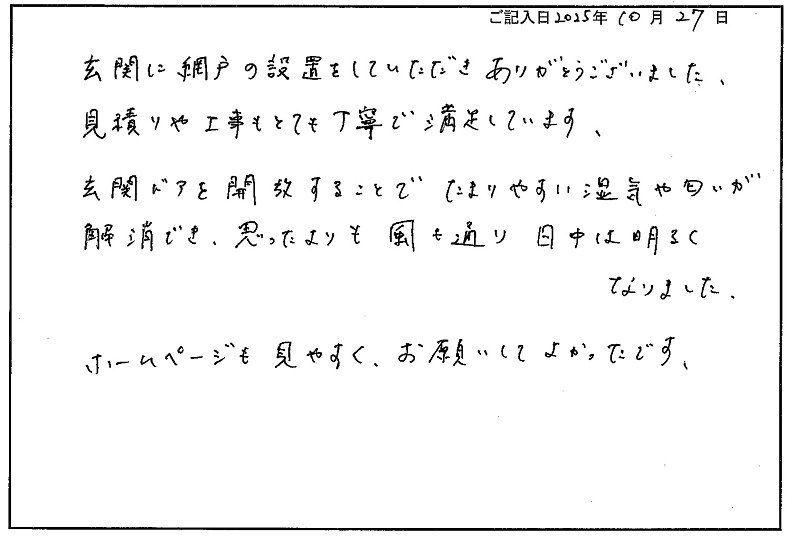 ご記入日2025年 10月 27日
玄関に網戸の設置をしていただきありがとうございました、
見積りや工事もとても丁寧で満足しています、
玄関ドアを開放することでたまりやすい湿気や匂いが
解消でき、思ったよりも風も通り日中は明るく
なりました、
ホームページも見やすく、お願いしてよかったです、